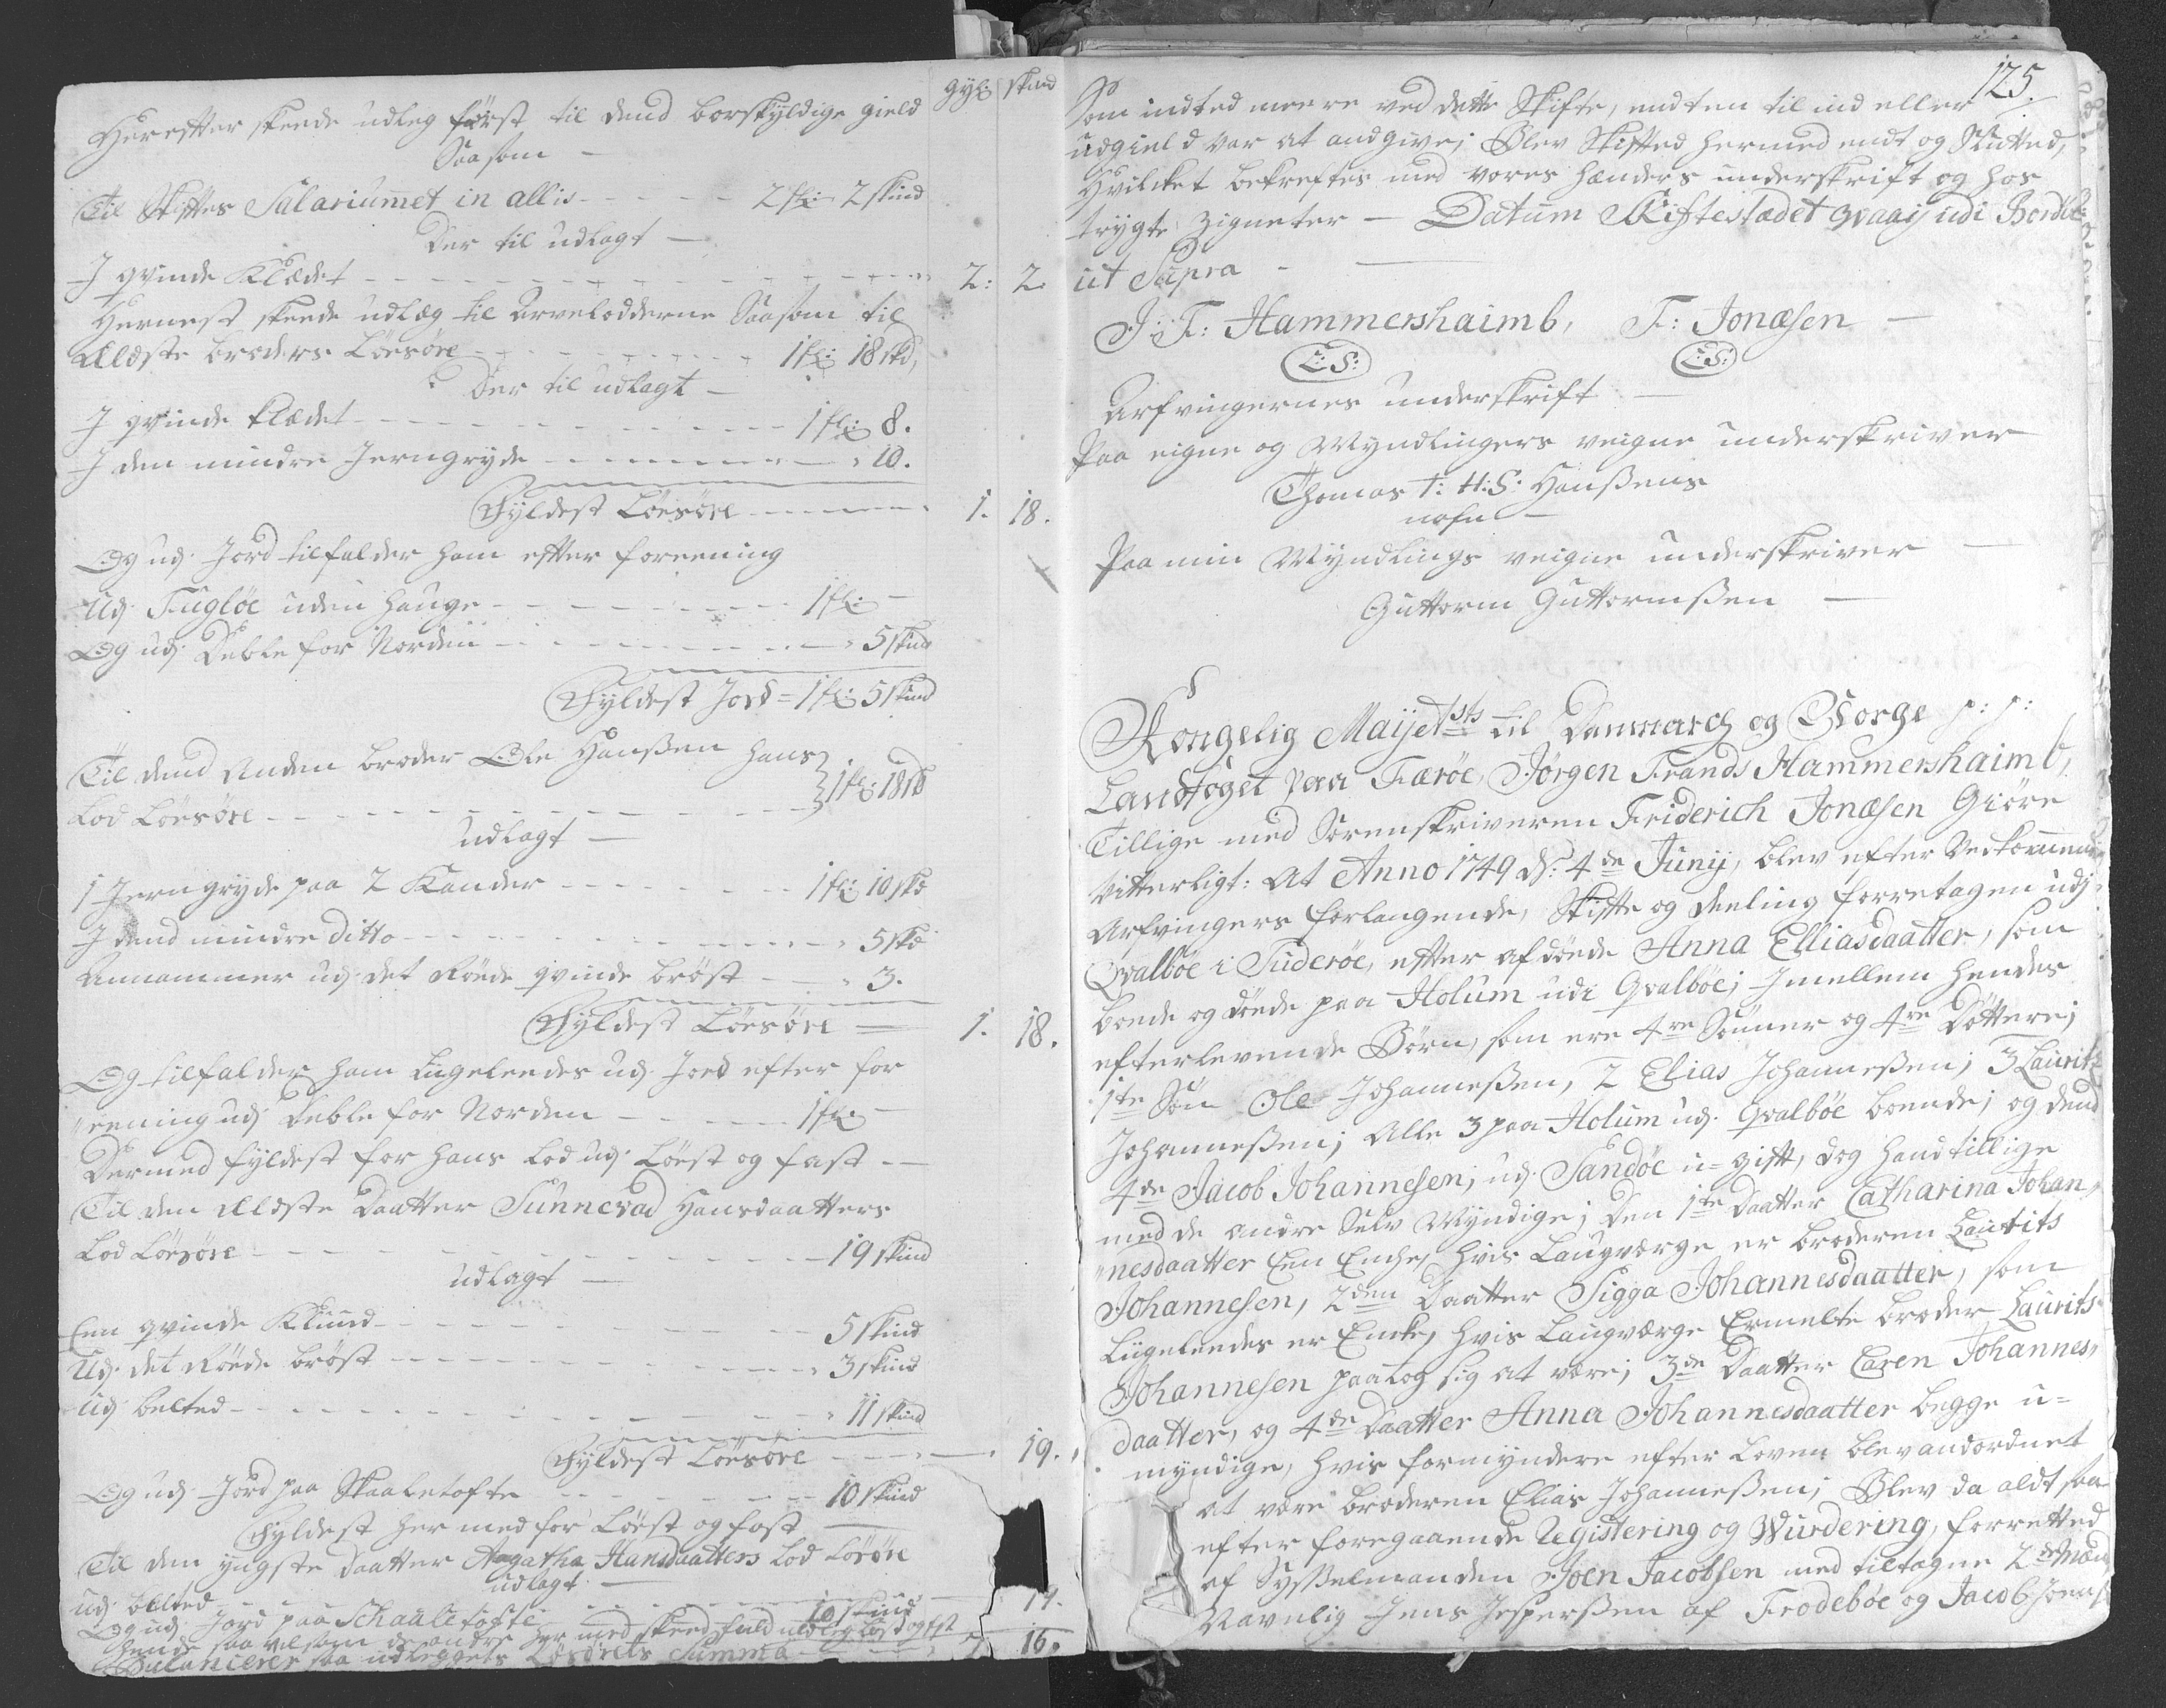 gyl: skind
Herefter skeede udleg først til dend borskyldige gield
Saasom
Til Skiftes Salariumet in allis - - - - - 2 fl: 2 skind
Der til udlagt —
I qvinde Klædet - - - - - - - - - - 2: 2.
Hernest skeede udlæg til Arvelodderne Saasom til
Ældste broders Löesøre - - - - - - 1 fl: 18 skd,
Der til udlagt —
I qvinde klædet - - - - - - - - - 1 fl: 8.
I den mindre Jerngryde - - - - - - - 10.
Fyldest Löesøre - - - - - - 1. 18.
Og udj Jord tilfalder ham efter foreening
Udj Fugløe uden hauge - - - - - - 1 fl: -
Og udj Deble for Norden - - - - - - 5 skind
Fyldest Jord = 1 fl: 5 skind
Til dend Anden broder Ole Hanßen hans
Lod Löesøre - - - - - - - - - } 1 fl: 18 sk
udlagt —
1 Jerngryde paa 2 Kander - - - - - 1 fl: 10 skd
I dend mindre ditto - - - - - - - 5 skd
Annammer udj det Röede qvinde bröst - - 3.
Fyldest Löesøre — 1. 18.
Og tilfalder ham Liigeleedes udj Jord efter for
"eening udj Deble for Norden - - - - 1 fl: -
Dermed fyldest for hans Lod udj Löest og fast - -
Til den ældste Daatter Sunnevad Hansdaatters
Lod Löesøre - - - - - - - - - 19 skind
udlagt —
Een qvinde - - - - - - - 5 skind
Udj det Röede bröst - - - - - - - 3 skind
Udj belted - - - - - - - - - 11 skind
Fyldest Löesøre - - - - - 19.
Og udj Jord paa Skaaletofte - - - - - 10 skind
Fyldest her med for Löest og fast
Til den yngste Daatter Aagatha Hansdaatters Lod Löröre
udlagt —
udj belted - - - - - - - - - 19.
Og udj Jord paa Schaaletofte - - - - 10 skind
hende saa vel som de andre her med skeed fuld udleg löst og fast
Balancerer saa udleggets Lösörets Summa - - - 7 16.
125.
Som indted meere ved dette Skifte, endten til ind eller
udgield var at andgive; Blev Skifted hermed endt og Slutted,
Hvilcket bekreftes med vores hænders underskrift og hos
trygte zigneter — Datum Skiftestædet qvaaij udi Bordöe
ut Supra
J: F: Hammershaimb, F: Jonæsen —
L: S: L: S:
Arfvingernes underskrift —
Paa eigne og Myndlingers veigne underskriver
Thomas T: H: S: Hanßens
nafn —
Paa min Myndlings veigne underskriver —
Guttorm Guttormßen —
Kongelig Maijetsts til Danmarch og Norge p: p:
Landfoget paa Færöe, Jørgen Frands Hammershaimb,
Tillige med Sorenskriveren Friderich Jonæsen Giöre
Vitterligt: At Anno 1749 d: 4de Junij, blev efter Vedkommende
Arfvingers forlangende, Skifte og deeling forretagen udj
Qvalböe i Suderöe, efter afdöede Anna Elliasdaatter, som
boede og döede paa Holum udi Qvalböe; Imellem hendes
efterlevende Börn, som ere 4re Sönner og 4re Döttere;
1te Sön Ole Johanneßen, 2 Elias Johanneßen; 3 Laurits
Johanneßen; Alle 3 paa Holum udj Qvalböe boende; og dend
4de Jacob Johannesen; udj Sandöe u-gift, dog hand tillige
med de andre Selv Myndige; Den 1te Daatter Catharina Johan,,
"nesdaatter Een Enche, hvis Laugværge er broderen Laurits
Johannesen, 2den Daatter Sigga Johannesdaatter, som
Liigeleedes er Encke, hvis Laugværge Ermelte broder Laurits
Johannesen paatog sig at være; 3de Daatter Caren Johannes,,
daatter, og 4de Daatter Anna Johannesdaatter begge u-
myndige, hvis formyndere efter Loven blev andordnet
at være broderen Elias Johanneßen; Blev da aldt saa
efter foregaaende Registering og Wurdering, forretted
af Sysselmanden Joen Jacobsen med tiltagne 2de Mænd
Navnlig Jens Jesperßen af Frodeböe og Jacob Joens